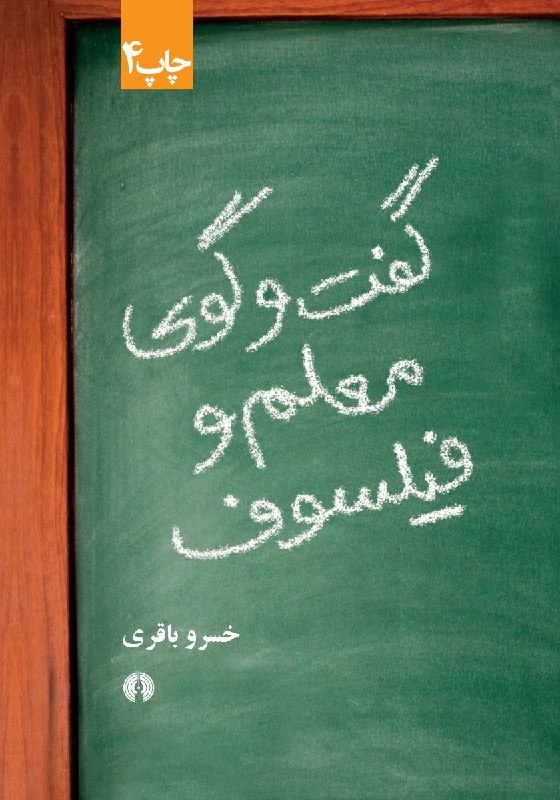 چاپ ۴
گفت و گوی
معلم و
فیلسوف
خسرو باقری